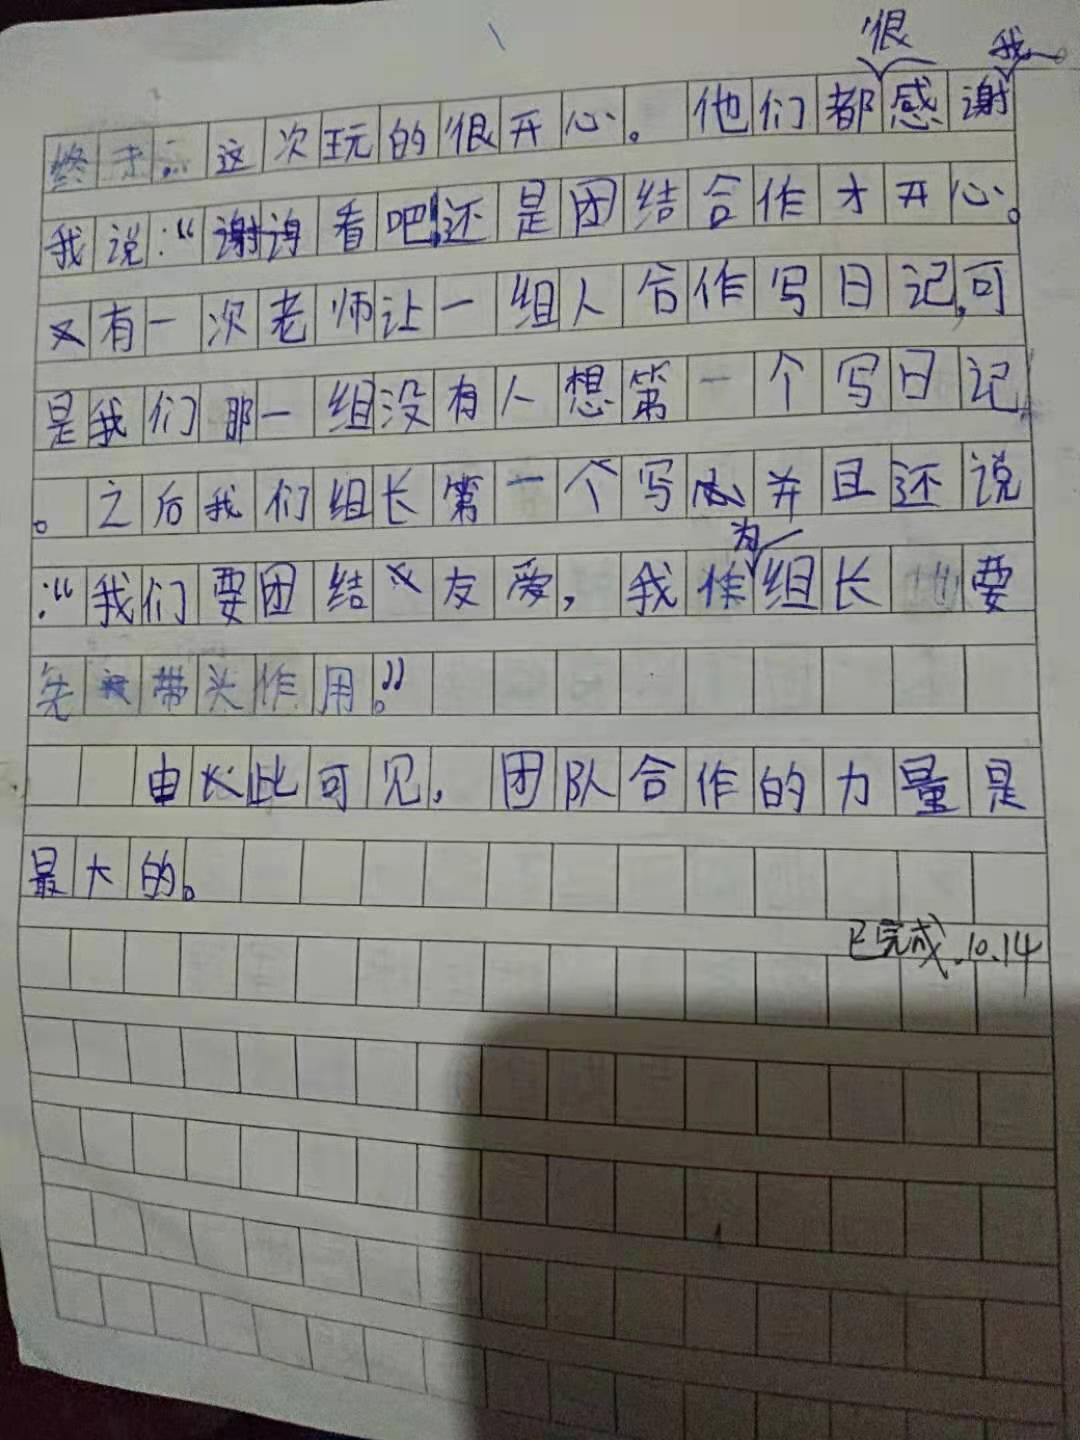 很 我。
终于。这次玩的很开心。他们都感谢
我说:“谢谢看吧!还是团结合作才开心。
又有一次老师让一组人合作写日记,可
是我们那一组没有人想第一个写日记
。之后我们组长第一个写 并且还说
为
:“我们要团结 友爱,我作组长 要
先 带头作用。”
由 此可见,团队合作的力量是
最大的。
已完成.10.14